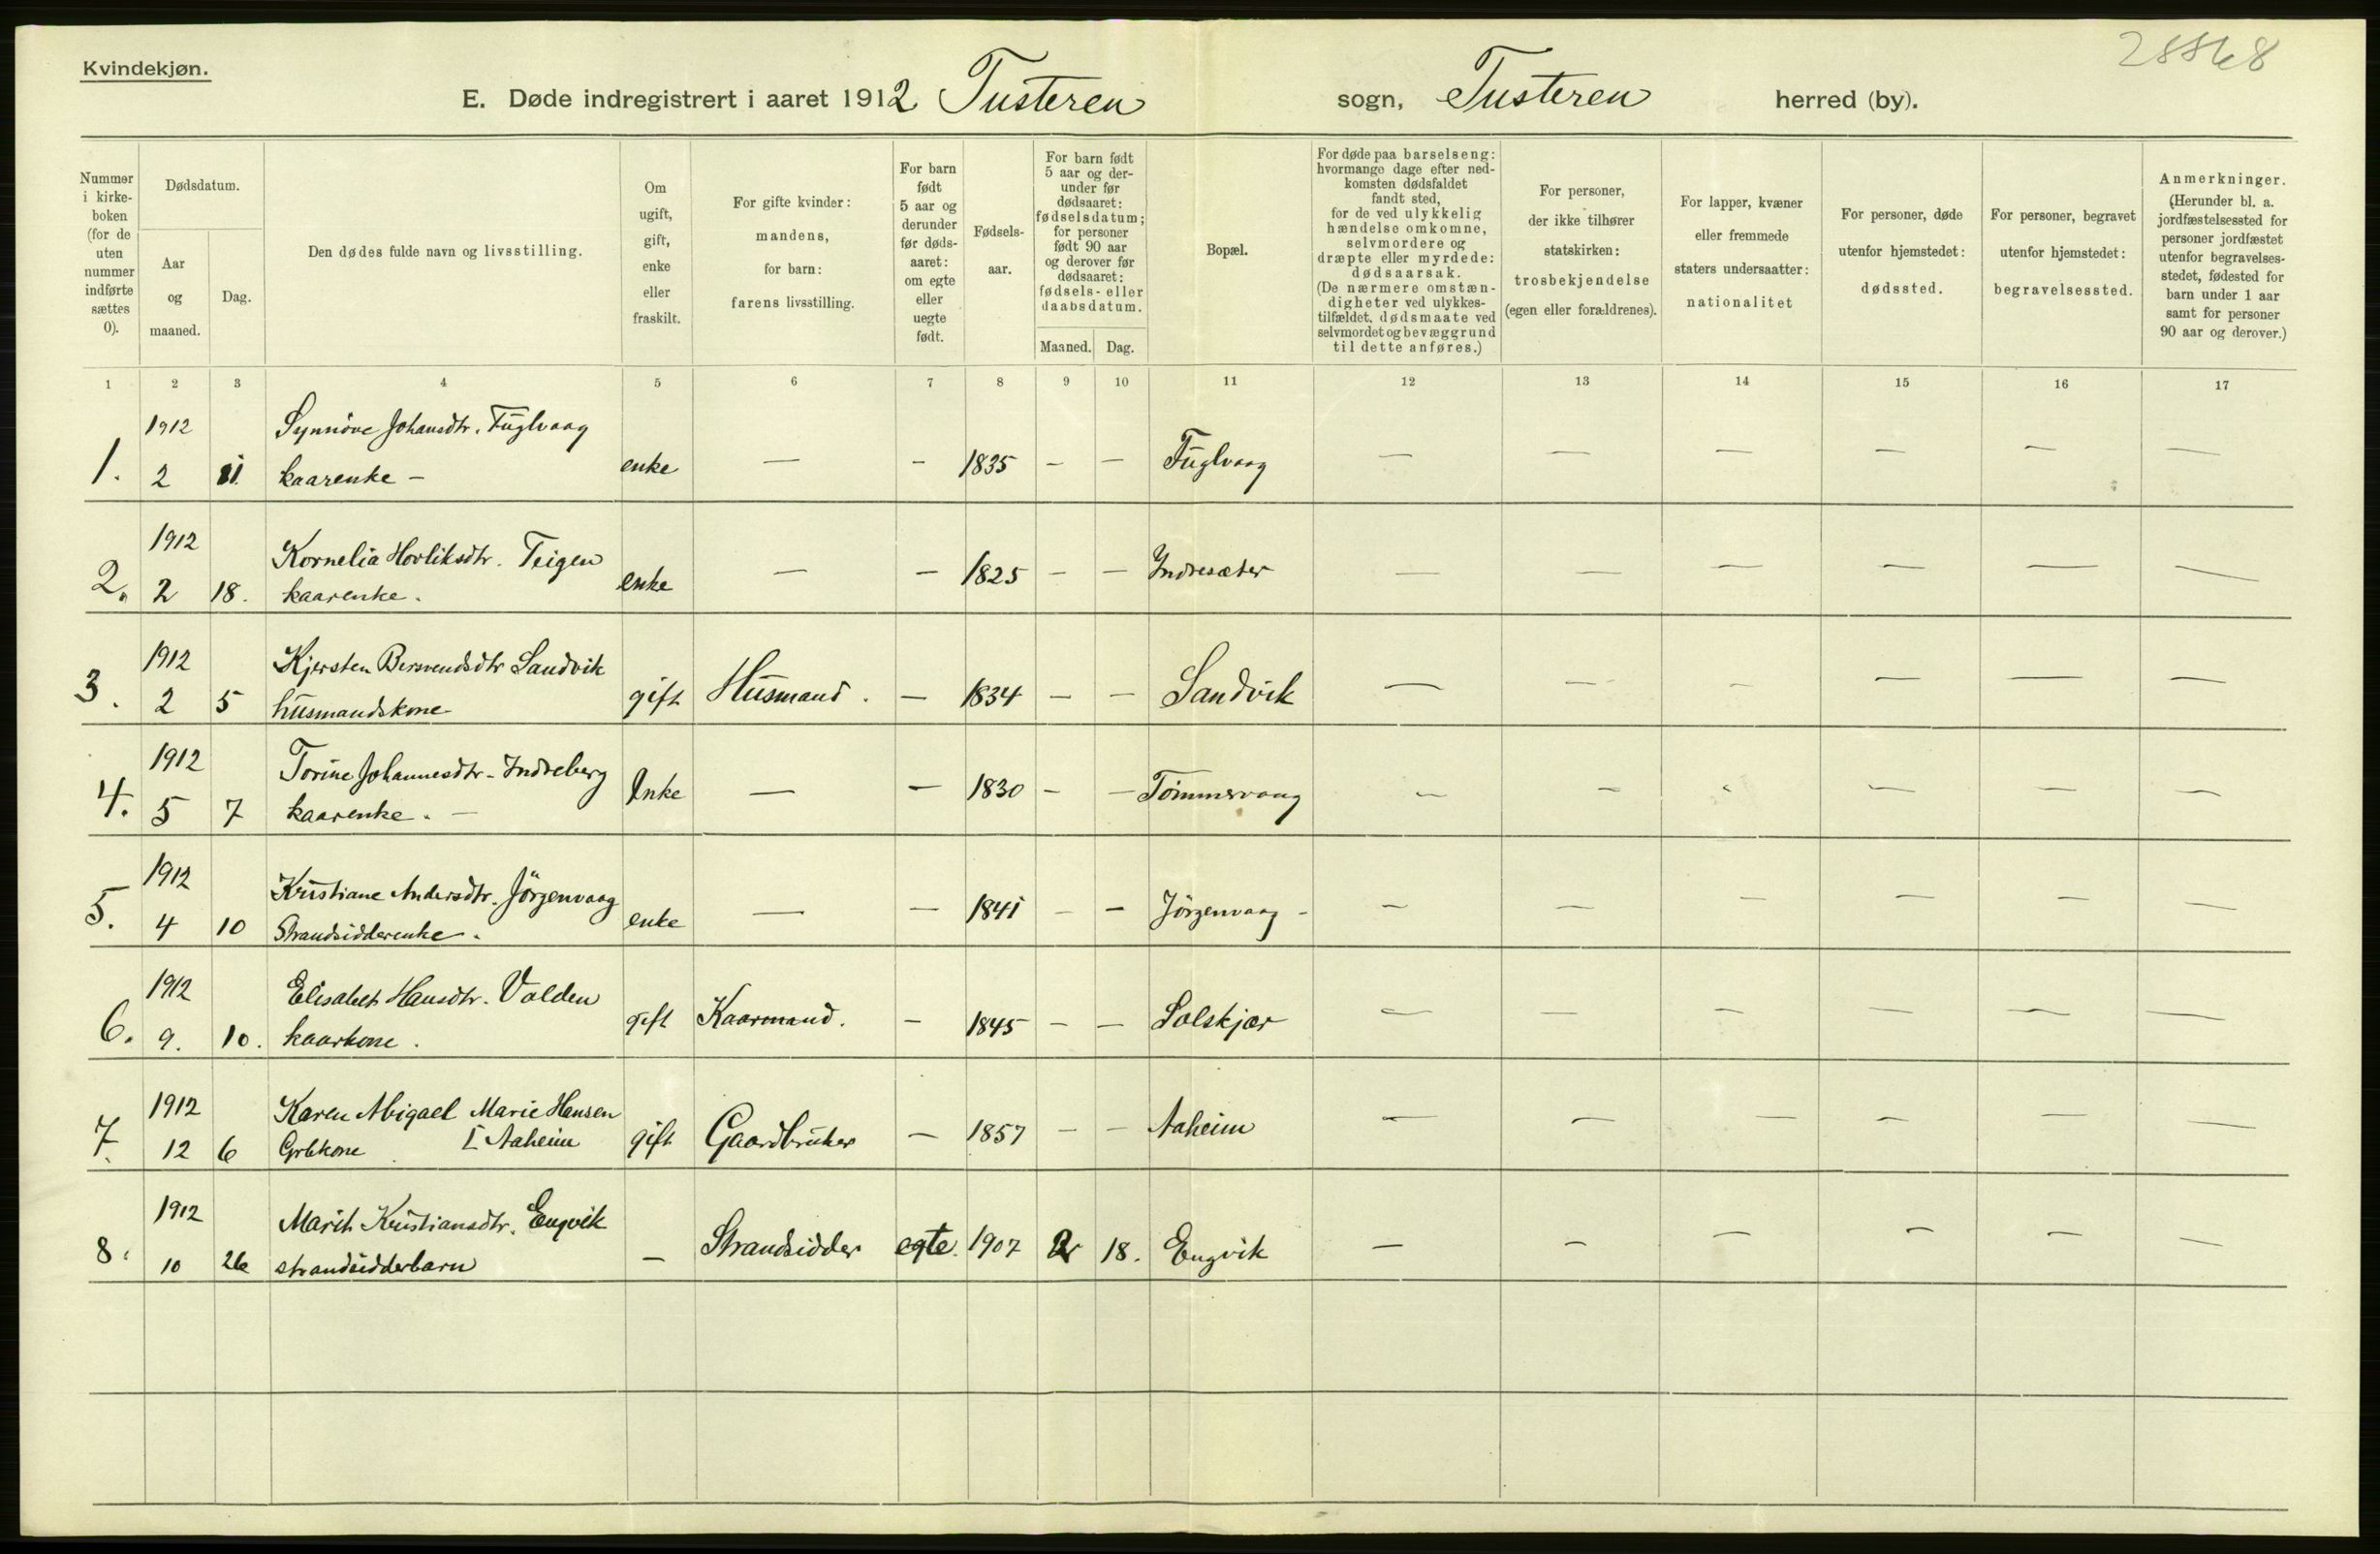 Kvindekjøn.
E. Døde indregistrert i aaret 1912 Tusteren sogn, Tusteren herred (by).
Nummer i kirke-boken (for de uten nummer indførte sættes 0).
Dødsdatum.
Aar og maaned.
Dag.
Den dødes fulde navn og livsstilling.
Om ugift, gift, enke eller fraskilt.
For gifte kvinder: mandens, for barn: farens livsstilling.
For barn født 5 aar og derunder før døds-aaret: om egte eller uegte født.
Fødsels-aar.
For barn født 5 aar og der-under før dødsaaret: fødselsdatum; for personer født 90 aar og derover før dødsaaret: fødsels- eller daabsdatum.
Maaned. Dag.
Bopæl.
For døde paa barselseng: hvormange dage efter ned-komsten dødsfaldet fandt sted, for de ved ulykkelig hændelse omkomne, selvmordere og dræpte eller myrdede: dødsaarsak. (De nærmere omstæn-digheter ved ulykkes-tilfældet, dødsmaate ved selvmordet og bevæggrund til dette anføres.)
For personer, der ikke tilhører statskirken: trosbekjendelse (egen eller forældrenes).
For lapper, kvæner eller fremmede staters undersaatter: nationalitet
For personer, døde utenfor hjemstedet: dødssted.
For personer, begravet utenfor hjemstedet: begravelsessted.
Anmerkninger. (Herunder bl. a. jordfæstelsessted for personer jordfæstet utenfor begravelses-stedet, fødested for barn under 1 aar samt for personer 90 aar og derover.)
1 2 3 4 5 6 7 8 9 10 11 12 13 14 15 16 17
1912 Synnöve Johansdtr. Fuglvaag
1. 2 kaarenke – enke — – 1835 – – Fuglvaag — — — — — —
1912 Kornelia Hovliksdtr. Teigen
2. 2 18. kaarenke. enke — – 1825 – – Indresæter — — — — — —
1912 Kjersten Bersvendsdtr Sandvik
3. 2 5 husmandskone gift Husmand. – 1834 – – Sandvik — — – — — —
1912 Torine Johannesdtr - Indreberg
4. 5 7 kaarenke. — Enke — – 1830 – – Tömmervaag – – – — – –
1912 Kristiane Andersdtr. Jörgenvaag
5. 4 10 Strandsidderenke. enke — – 1841 – – Jörgenvaag – – — – – – —
1912 Elisabet Hansdtr. Valden
6. 9. 10. kaarkone. gift Kaarmand. – 1845 – – Solskjær — — – – – —
1912 Karen Abigael Marie Hansen
7. 12 6 Grbkone I Aaheim gift Gaardbruker – 1857 – – Aaheim — — — – — —
1912 Marith Kristiansdtr. Engvik
8. 10 26 strandsidderbarn – Strandsidder egte. 1907 18. Engvik — – — – – —